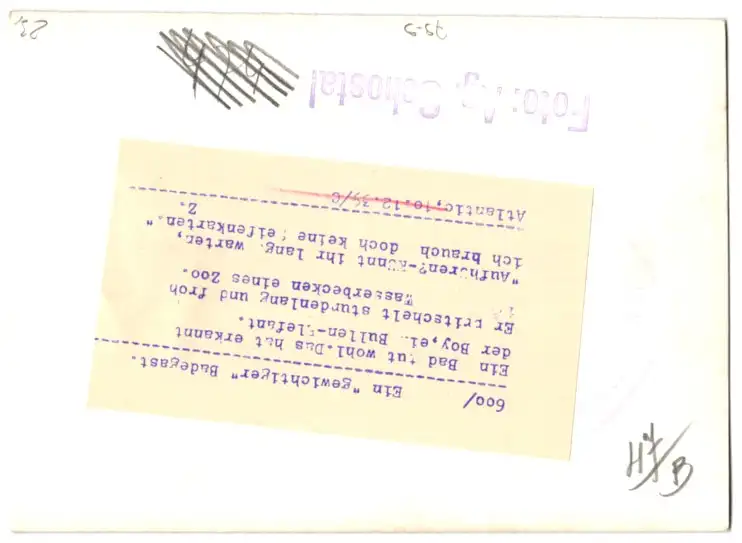 600/ Ein "gewichtiger" Badegast.
Ein Bad tut wohl.Das hat erkannt
der Boy, ei. Bullen-Elefant.
Er pritschelt stundenlang und froh
Wasserbecken eines Zoo.
"Aufhören?-Könnt ihr lang. warten,
ich brauch doch keine Seifenkarten."
Z.
Atlantic, 10.12.
Foto: Ag. Schostal
H/B